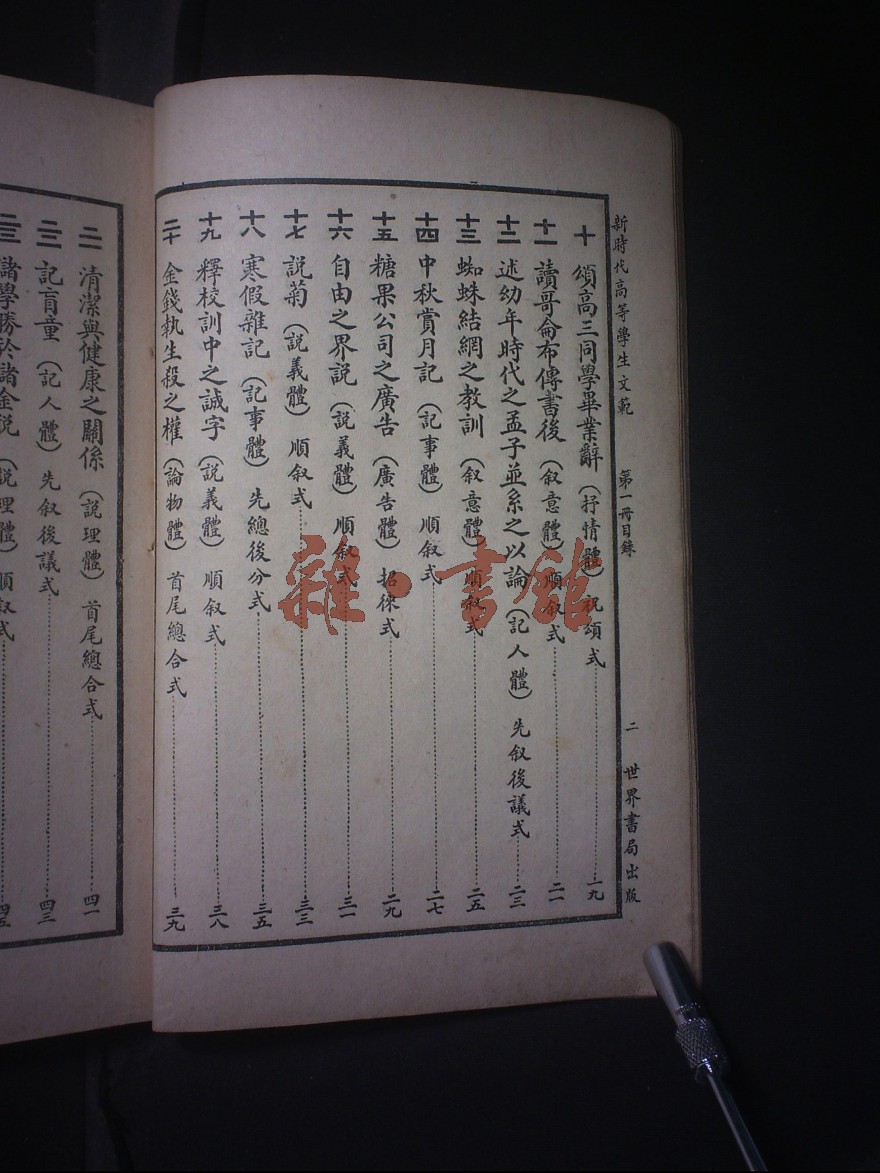 新時代高等學生文範 第一冊目錄 二 世界書局出版
十 頌高三同學畢業辭（抒情體）祝頌式……一九
十一 讀哥侖布傳書後（叙意體）順叙式……二一
十二 述幼年時代之孟子並系之以論（記人體）先叙後議式……二三
十三 蜘蛛結網之教訓（叙意體）順叙式……二五
十四 中秋賞月記（記事體）順叙式……二七
十五 糖果公司之廣告（廣告體）招徠式……二九
十六 自由之界説（説義體）順叙式……三一
十七 説菊（説義體）順叙式……三三
十八 寒假雜記（記事體）先總後分式……三五
十九 釋校訓中之誠字（説義體）順叙式……三八
二十 金錢執生殺之權（論物體）首尾總合式……三九
二一 清潔與健康之關係（説理體）首尾總合式……四一
二二 記盲童（記人體）先叙後議式……四三
二三 諸學勝於諸金説（説理體）順叙式……四五
雜·書館